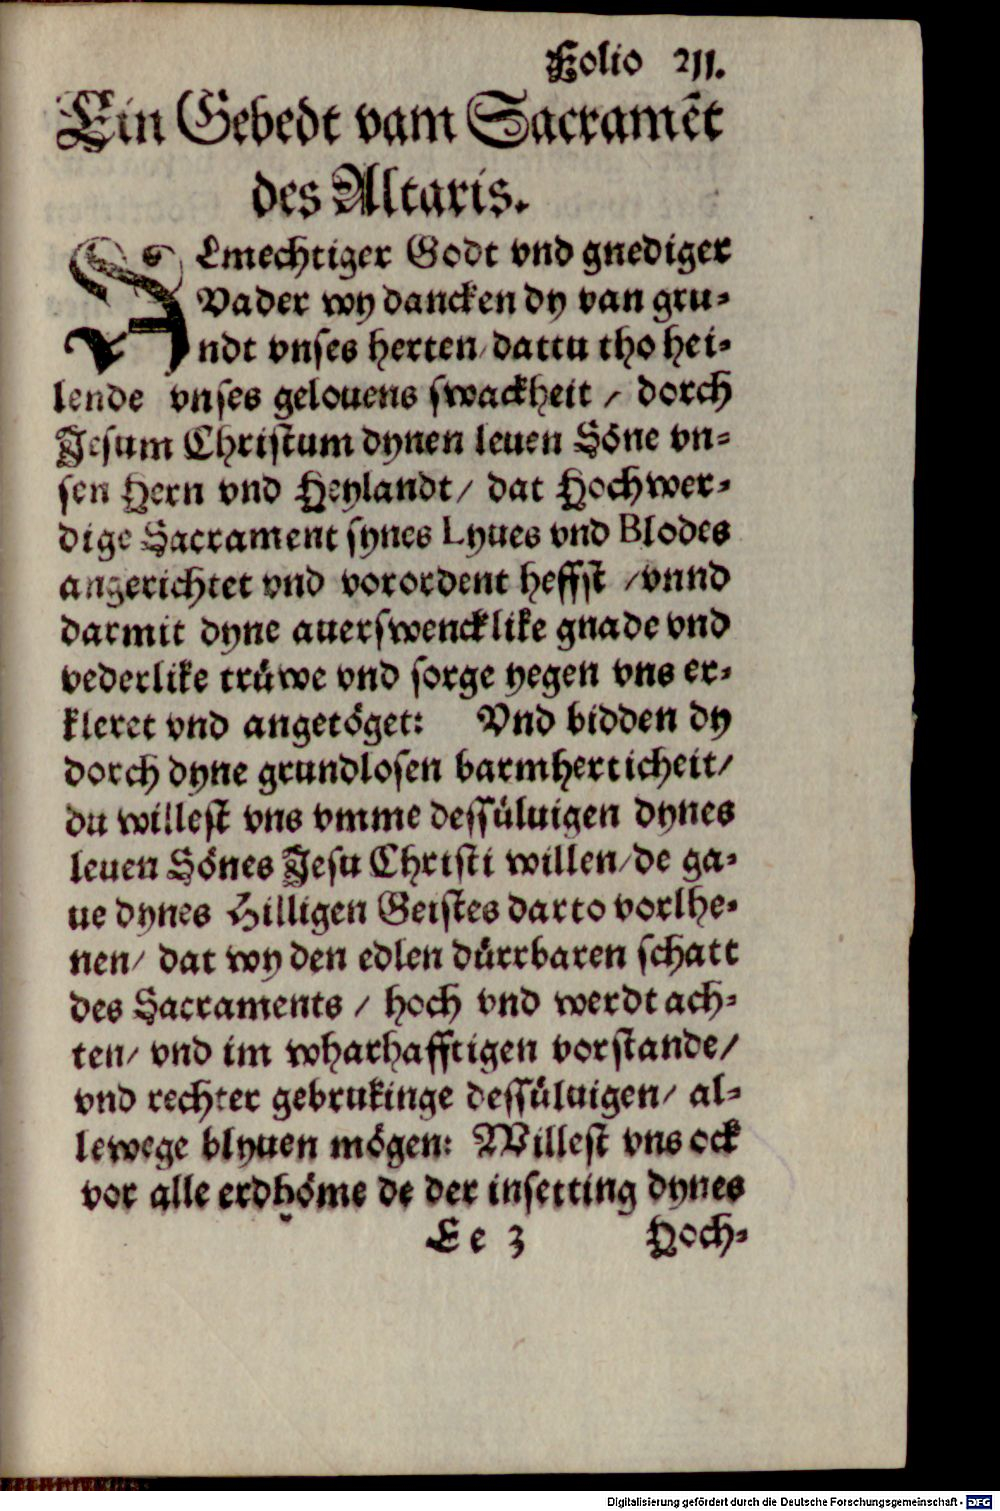 Folio 211.
Ein Gebedt vam Sacramēt
des Altaris.
ALmechtiger Godt vnd gnediger
Vader wy dancken dy van gru-
ndt vnses herten/ dattu tho hei-
lende vnses gelouens swackheit / dorch
Jesum Christum dynen leuen Söne vn-
sen Hern vnd Heylandt/ dat Hochwer-
dige Sacrament synes Lyues vnd Blodes
angerichtet vnd vorordent heffst /vnnd
darmit dyne auerswencklike gnade vnd
vederlike trüwe vnd sorge yegen vns er-
kleret vnd angetöget: Vnd bidden dy
dorch dyne grundlosen barmherticheit/
du willest vns vmme dessüluigen dynes
leuen Sönes Jesu Christi willen/de ga-
ue dynes Hilligen Geistes darto vorlhe-
nen/ dat wy den edlen dürrbaren schatt
des Sacraments / hoch vnd werdt ach-
ten/ vnd im wharhafftigen vorstande/
vnd rechter gebrukinge dessüluigen/ al-
lewege blyuen mögen: Willest vns ock
vor alle erdhöme de der insetting dynes
Ee 3 Hoch-
Digitalisierung gefördert durch die Deutsche Forschungsgemeinschaft - DFG